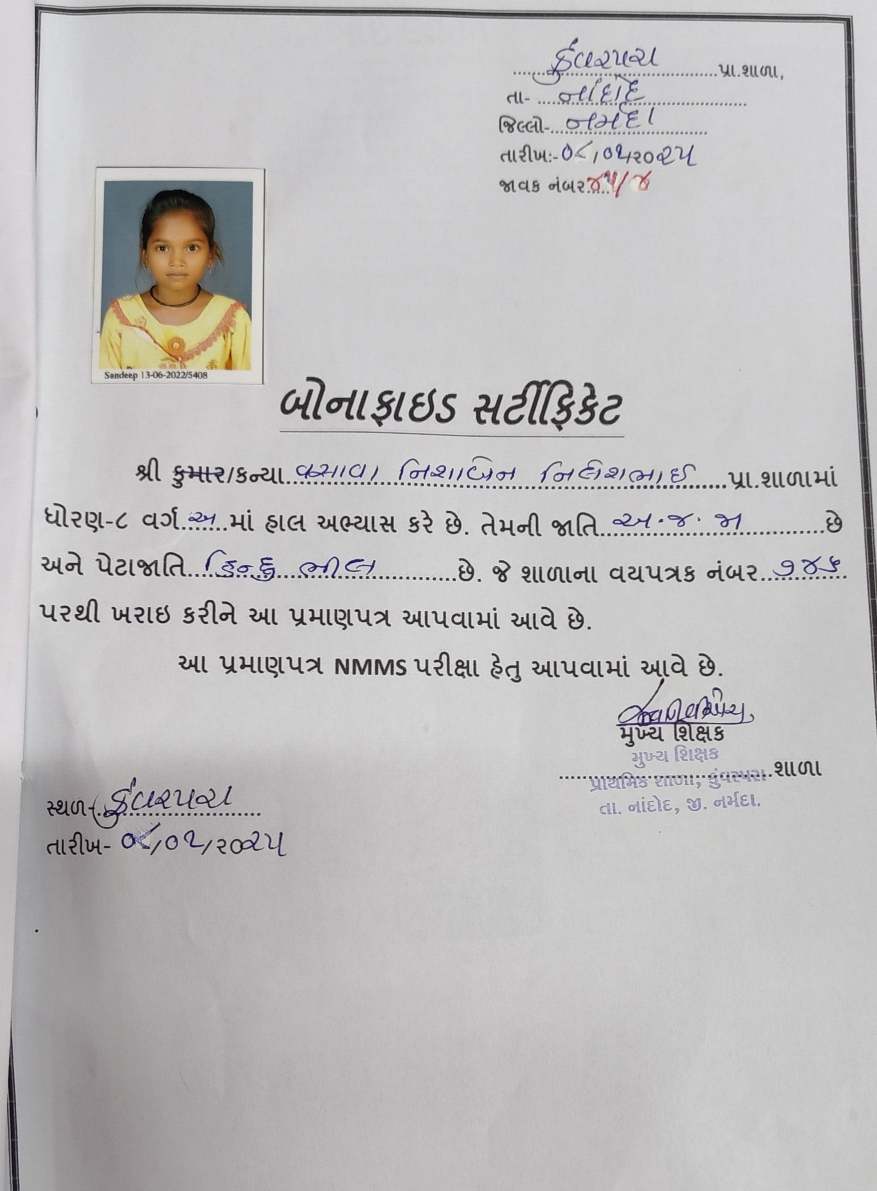 કુંવરપરા પ્રા.શાળા,
તા- નાંદોદ
જિલ્લો- નર્મદા
તારીખ:- ૦૮/૦૨/૨૦૨૫
જાવક નંબર
Sandeep 13-06-2022/5408
બોનાફાઇડ સર્ટીફિકેટ
શ્રી કુમાર/કન્યા વસાવા નિશાબેન પ્રા.શાળામાં
ધોરણ-૮ વર્ગ અ માં હાલ અભ્યાસ કરે છે. તેમની જાતિ અ.જ.જા છે
અને પેટાજાતિ હિન્દુ ભીલ છે. જે શાળાના વયપત્રક નંબર
પરથી ખરાઇ કરીને આ પ્રમાણપત્ર આપવામાં આવે છે.
આ પ્રમાણપત્ર NMMS પરીક્ષા હેતુ આપવામાં આવે છે.
મુખ્ય શિક્ષક
મુખ્ય શિક્ષક
શાળા
પ્રાથમિક શાળા, કુંવરપરા
તા. નાંદોદ, જી. નર્મદા.
સ્થળ- કુંવરપરા
તારીખ- ૦૮/૦૨/૨૦૨૫